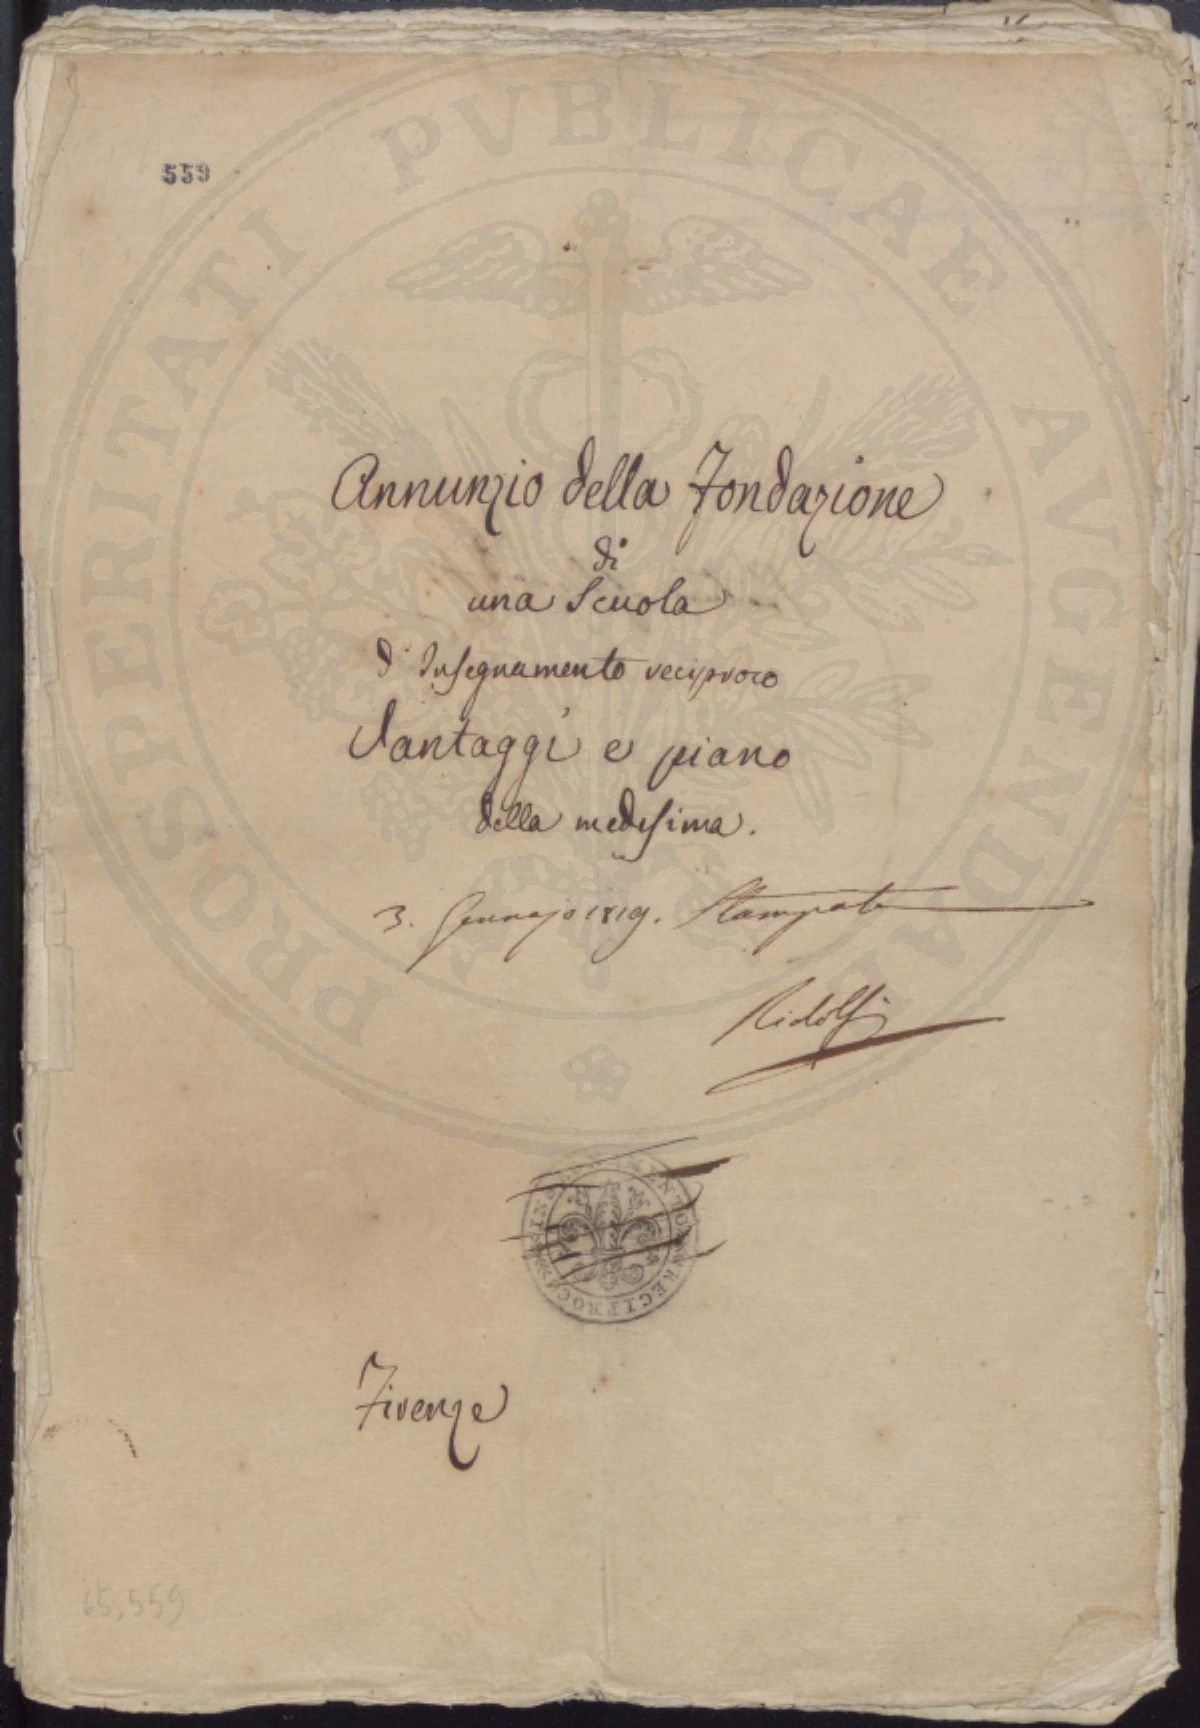 PROSPERITATI PVBLICAE AVGENDAE
559
Annunzio della Fondazione
di
una Scuola
d'Insegnamento reciproco
Vantaggi e piano
della medesima.
3. Gennajo 1819. Stampato
Ridolfi
INSEGNAMENTO RECIPROCO
Firenze
65,559